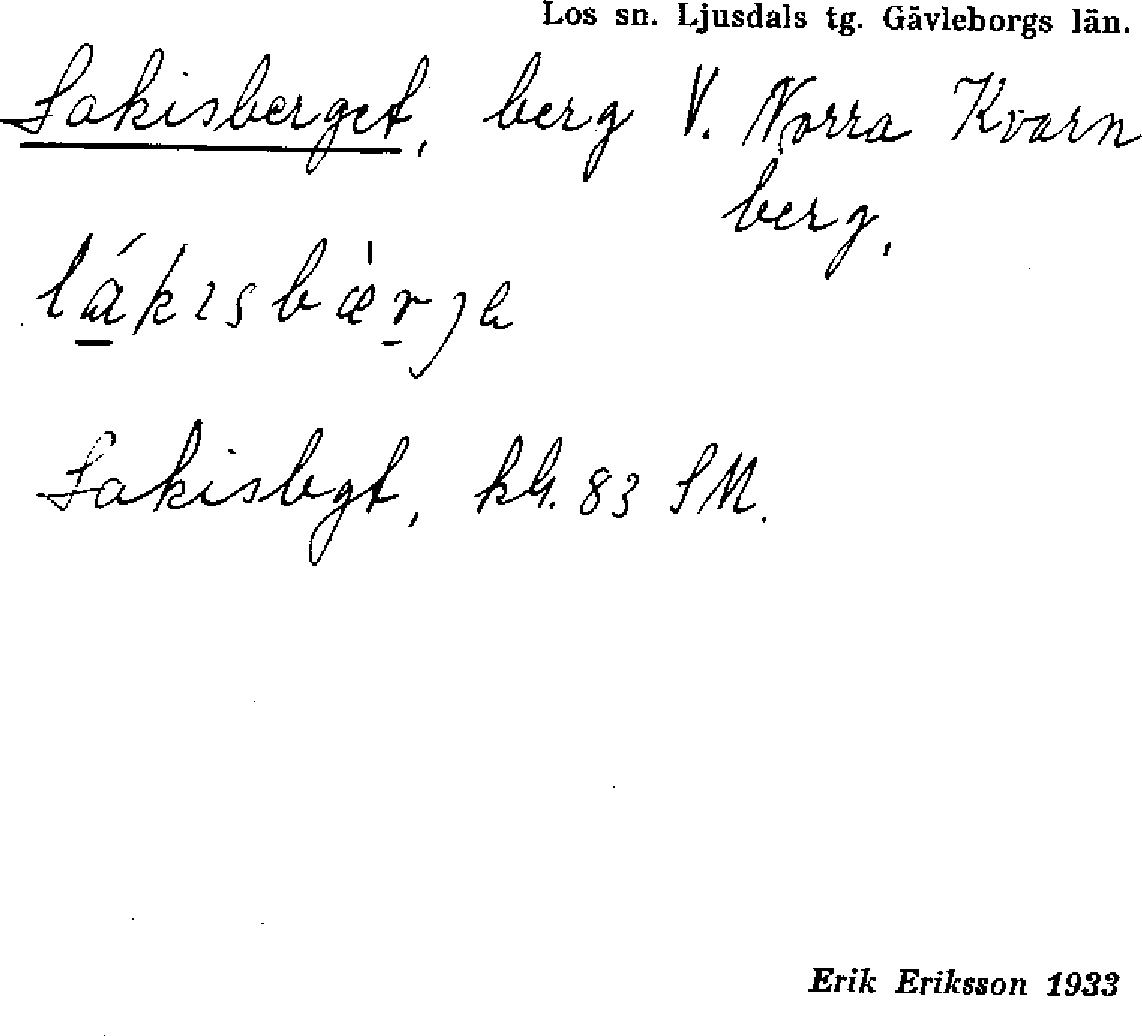 Los sn. Ljusdals tg. Gävleborgs län.
Lakisberget, berg V. Norra Kvarn
berg,
lákisbær̀je
Lakisbgt, kbl. 83 SM.
Erik Eriksson 1933